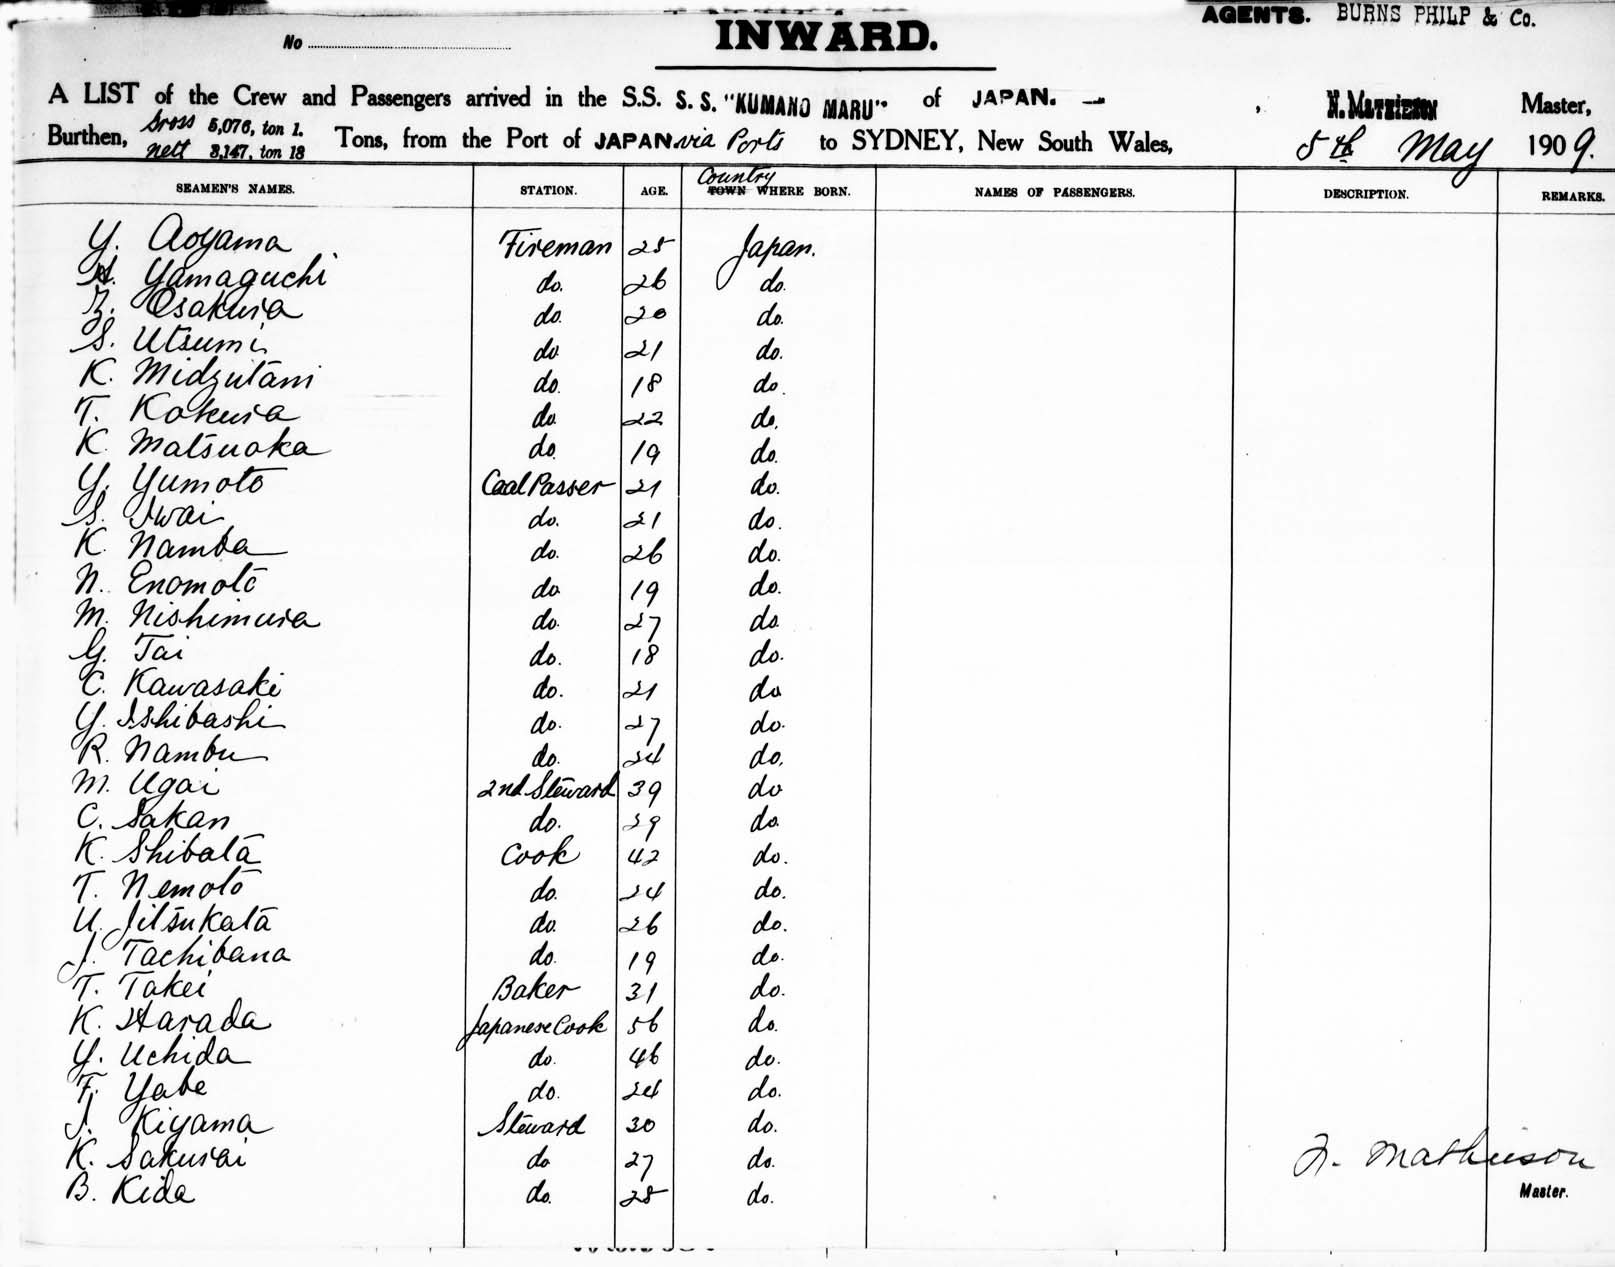 AGENTS. BURNS PHILP & Co.
No
INWARD.
A LIST of the Crew and Passengers arrived in the S.S. S. S. "KUMANO MARU" of JAPAN. N. MATHIESON Master,
Burthen, Gross 5,076, ton 1. Nett 3,147, ton 13 Tons, from the Port of JAPAN via Ports to SYDNEY, New South Wales, 5th May 1909.
SEAMEN'S NAMES. STATION. AGE. Country TOWN WHERE BORN. NAMES OF PASSENGERS. DESCRIPTION. REMARKS.
Y. Aoyama Fireman 25 Japan.
H. Yamaguchi do. 26 do.
Z. Osakura do. 20 do.
S. Utsumi do 21 do.
K. Midzutani do. 18 do.
T. Kokura do 22 do.
K. Matsuoka do. 19 do.
Y. Yumoto Coal Passer 21 do.
S. Iwai do. 21 do.
K. Namba do. 26 do.
N. Enomoto do 19 do.
M. Nishimura do. 27 do
G. Tai do. 18 do.
C. Kawasaki do. 21 do
Y. Ishibashi do. 27 do.
R. Nambu do. 24 do.
M. Ugai 2nd Steward 39 do
C. Sakan do. 29 do.
K. Shibata Cook 42 do.
T. Nemoto do. 24 do.
U. Jitsukata do. 26 do.
J. Tachibana do. 19 do.
T. Takei Baker 31 do.
K. Harada Japanese Cook 56 do.
Y. Uchida do. 46 do.
F. Yabe do. 24 do.
J. Kiyama Steward 30 do.
K. Sakurai do 27 do.
B. Kida do. 25 do.
N. Mathieson
Master.